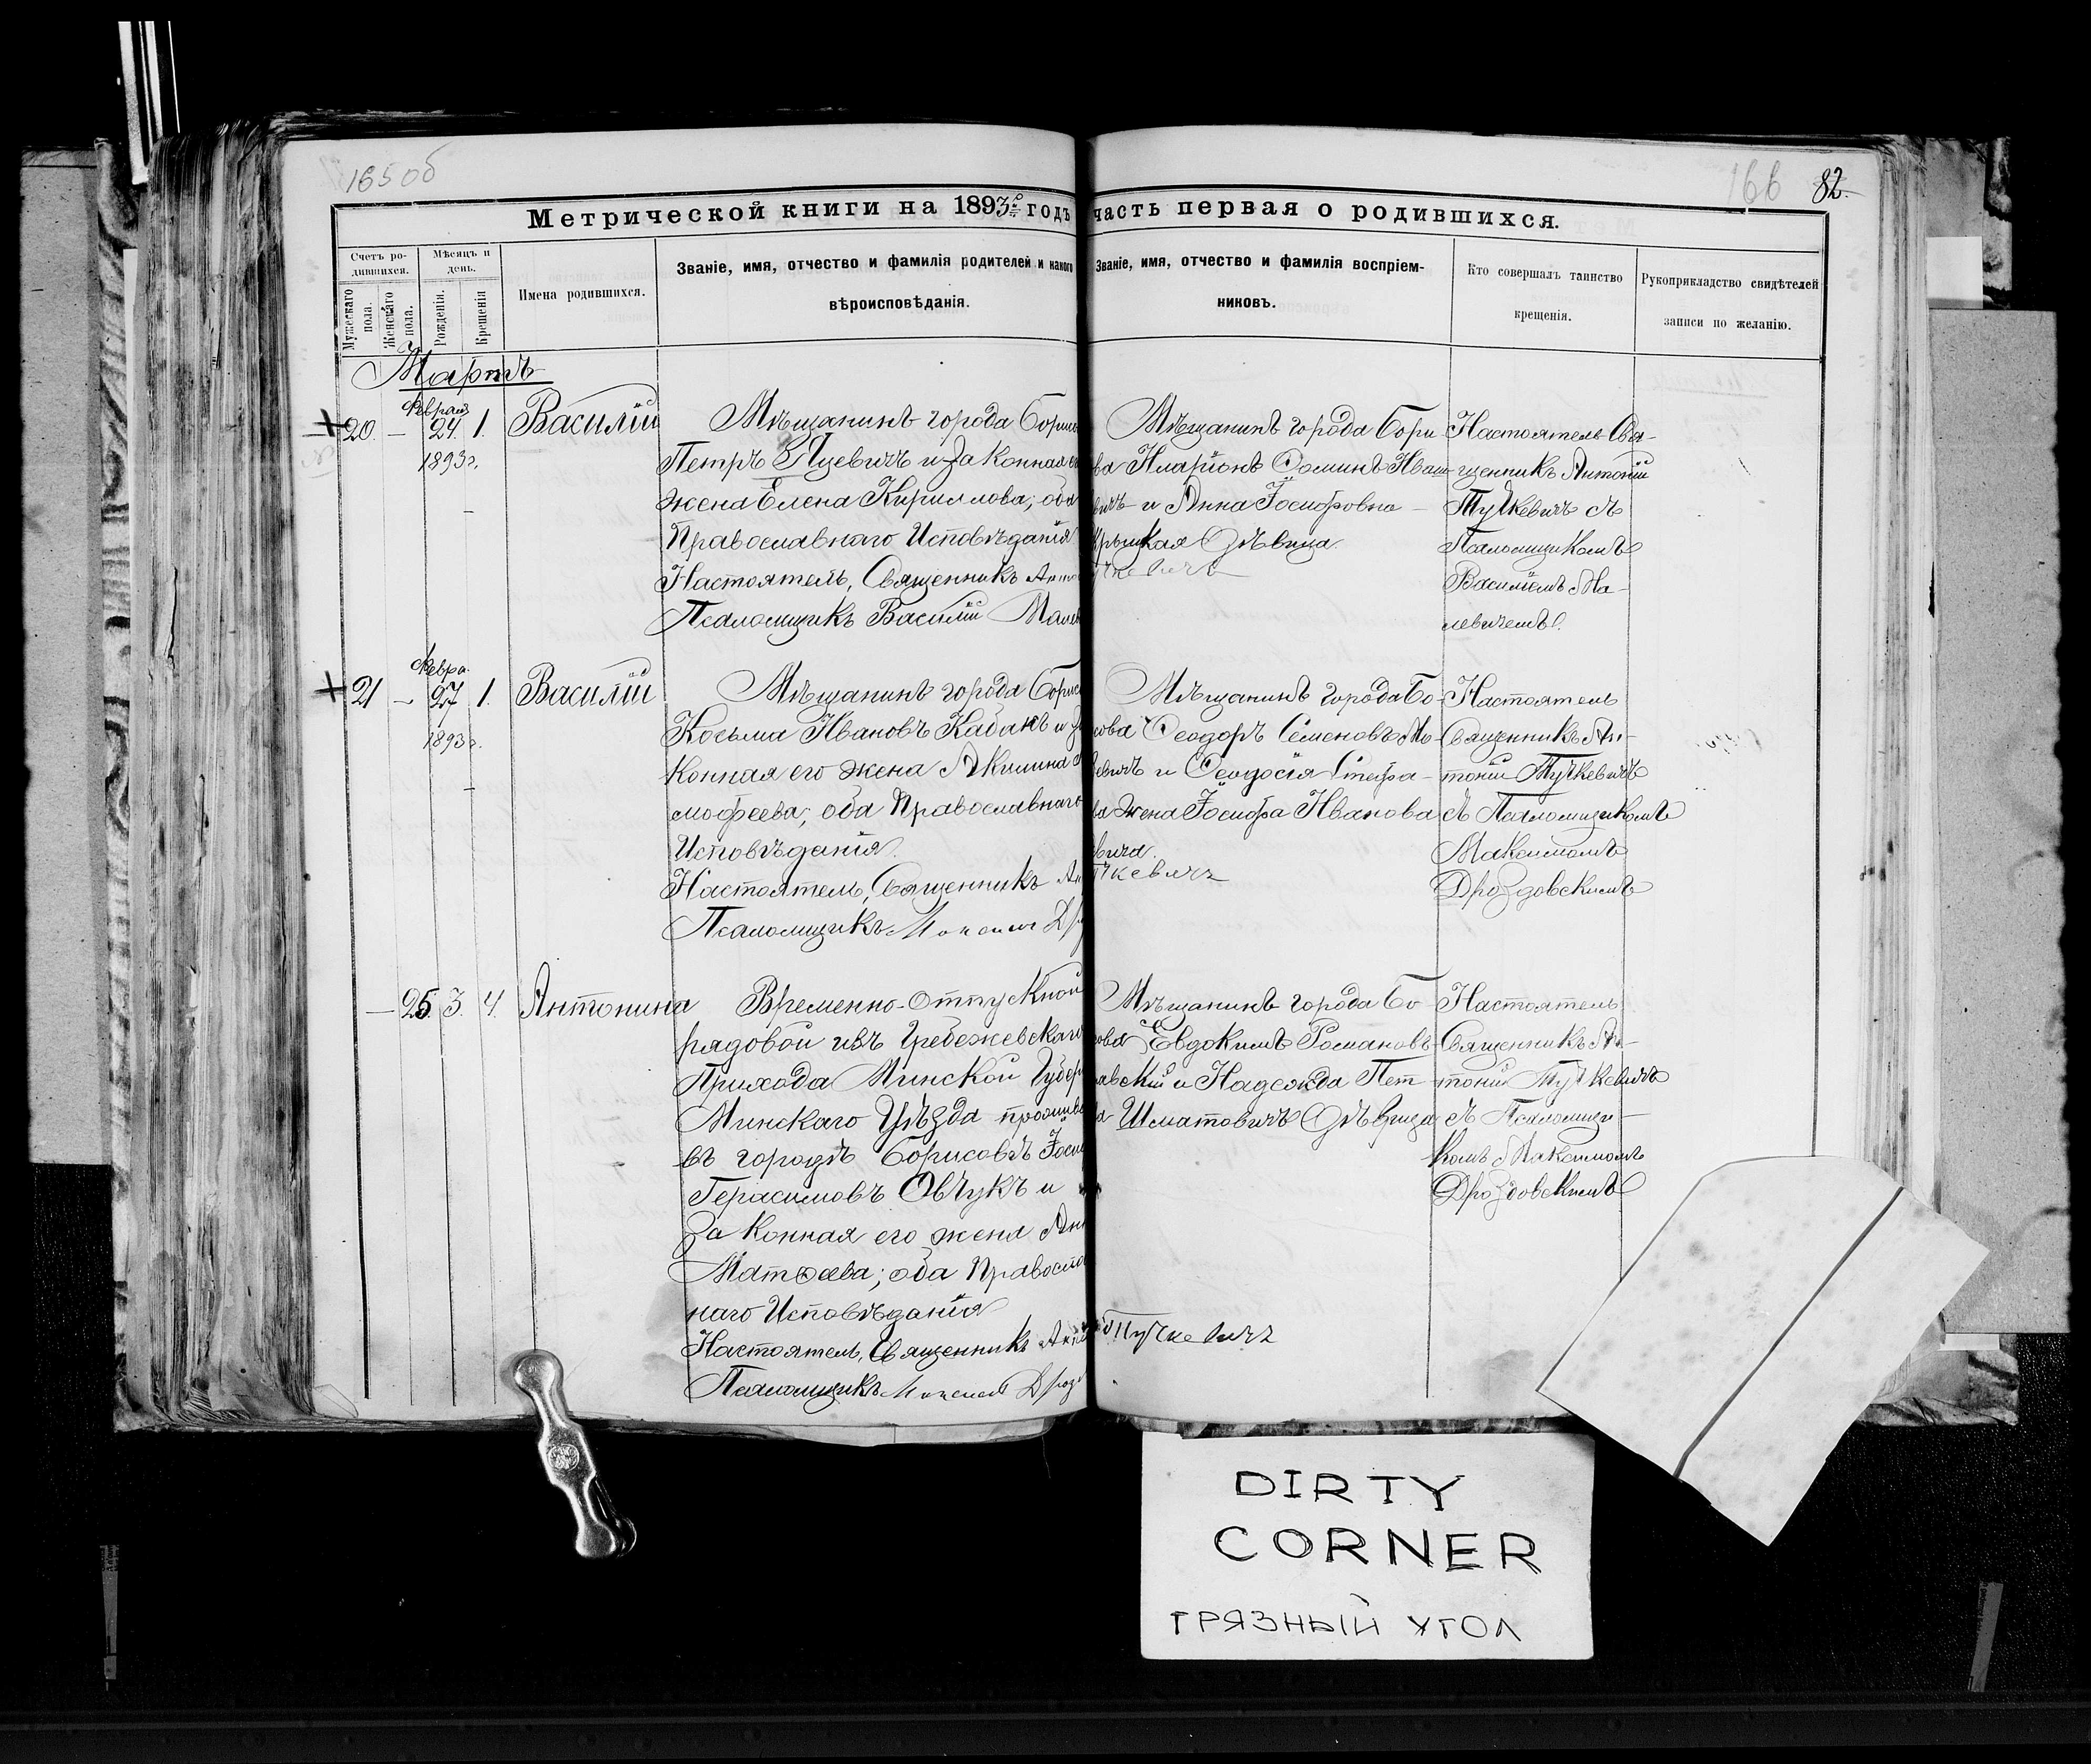 165 об
166 82
Метрической книги на 1893й годъ часть первая о родившихся.
Счетъ родившихся.
Мужескаго пола.
Женскаго пола.
Мѣсяцъ и день.
Рожденія.
Крещенія
Имена родившихся.
Званіе, имя, отчество и фамилія родителей и какого
вѣроисповѣданія.
Званіе, имя, отчество и фамилія воспріем-
никовъ.
Кто совершалъ таинство
крещенія.
Рукоприкладство свидѣтелей
записи по желанію.
Мартъ
20. – 24. 1. Василій
1893г.
Мѣщанинъ города Борис
Петръ Яцевичъ и законная
жена Елена Кириллова; оба
Православнаго Исповѣданія
Настоятель, Священникъ
Псаломщикъ Василій
Мѣщанинъ города Бори-
ва Иларіонъ
и Анна Іосифовна –
Дѣвица.
Настоятель Свя-
щенникъ Антоній
Тучкевичъ съ
Псаломщикомъ
Василіемъ Ма-
левичемъ.
21 – 27 1. Василій
1893г.
Мѣщанинъ города Борис
Козьма Ивановъ Кабакъ и
конная его жена Акилина
мофеева; оба Православнаго
Исповѣданія.
Настоятель, Священникъ
Псаломщикъ Максим
Мѣщанинъ города Бо-
сова Ѳеодоръ Семеновъ
евичъ и Ѳеодосія Стефа-
ва жена Іосифа Иванова
вича.
Настоятель
Священникъ Ан-
тоній Тучкевичъ
съ Псаломщикомъ
Максимомъ
Дроздовскимъ
– 25. 3. 4. Антонина
Временно-отпускной
рядовой изъ Гребежевскаго
Прихода Минской Губер
Минскаго Уѣзда прожив
въ городѣ Борисовѣ Іоси
Герасимовъ Овчукъ и
законная его жена Ан
Матѳеева; оба Правосла
наго Исповѣданія
Настоятель, Священникъ
Псаломщикъ Максим Дроз
Мѣщанинъ города Бо-
сова Евдокимъ Романовъ
авскій и Надежда Пет-
Шматовичъ Дѣвица
Тучкевичъ
Настоятель
Священникъ Ан-
тоній Тучкевичъ
съ Псаломщи-
комъ Максимомъ
Дроздовскимъ
DIRTY
CORNER
ГРЯЗНЫЙ УГОЛ